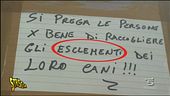 SI PREGA LE PERSONE
X BENE DI RACCOGLIERE
GLI ESCLEMENTI DEI
LORO CANI!!!
5